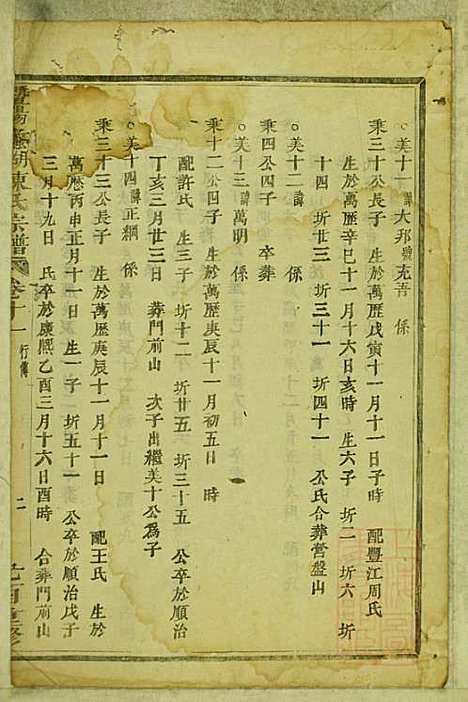 ○美十一諱大邦號充吾　係
秉三十公長子　生於萬歷戊寅十一月十一日子時　配豐江周氏
生於萬歷辛巳十一月十六日亥時　生六子　圻二　圻六　圻
十四　圻三十一　圻四十一　公氏合葬營盤山
○美十二諱　係
秉四公四子　卒葬
○美十三諱萬明　係
秉十二公四子　生於萬歷庚辰十一月初五日　時
配許氏　生三子　圻十二　圻廿五　圻三十五　公卒於順治
丁亥三月廿三日　葬門前山　次子出繼美十公為子
○美十四諱正綱　係
秉三十三公長子　生於萬歷庚辰十一月十一日　配王氏　生於
萬歷丙申正月十一日　生一子　圻五十一　公卒於順治戊子
三月十九日　氏卒於康熙乙酉三月十六日酉時　合葬門前山
陳氏宗譜　卷十一　行傳　二　乙酉重修